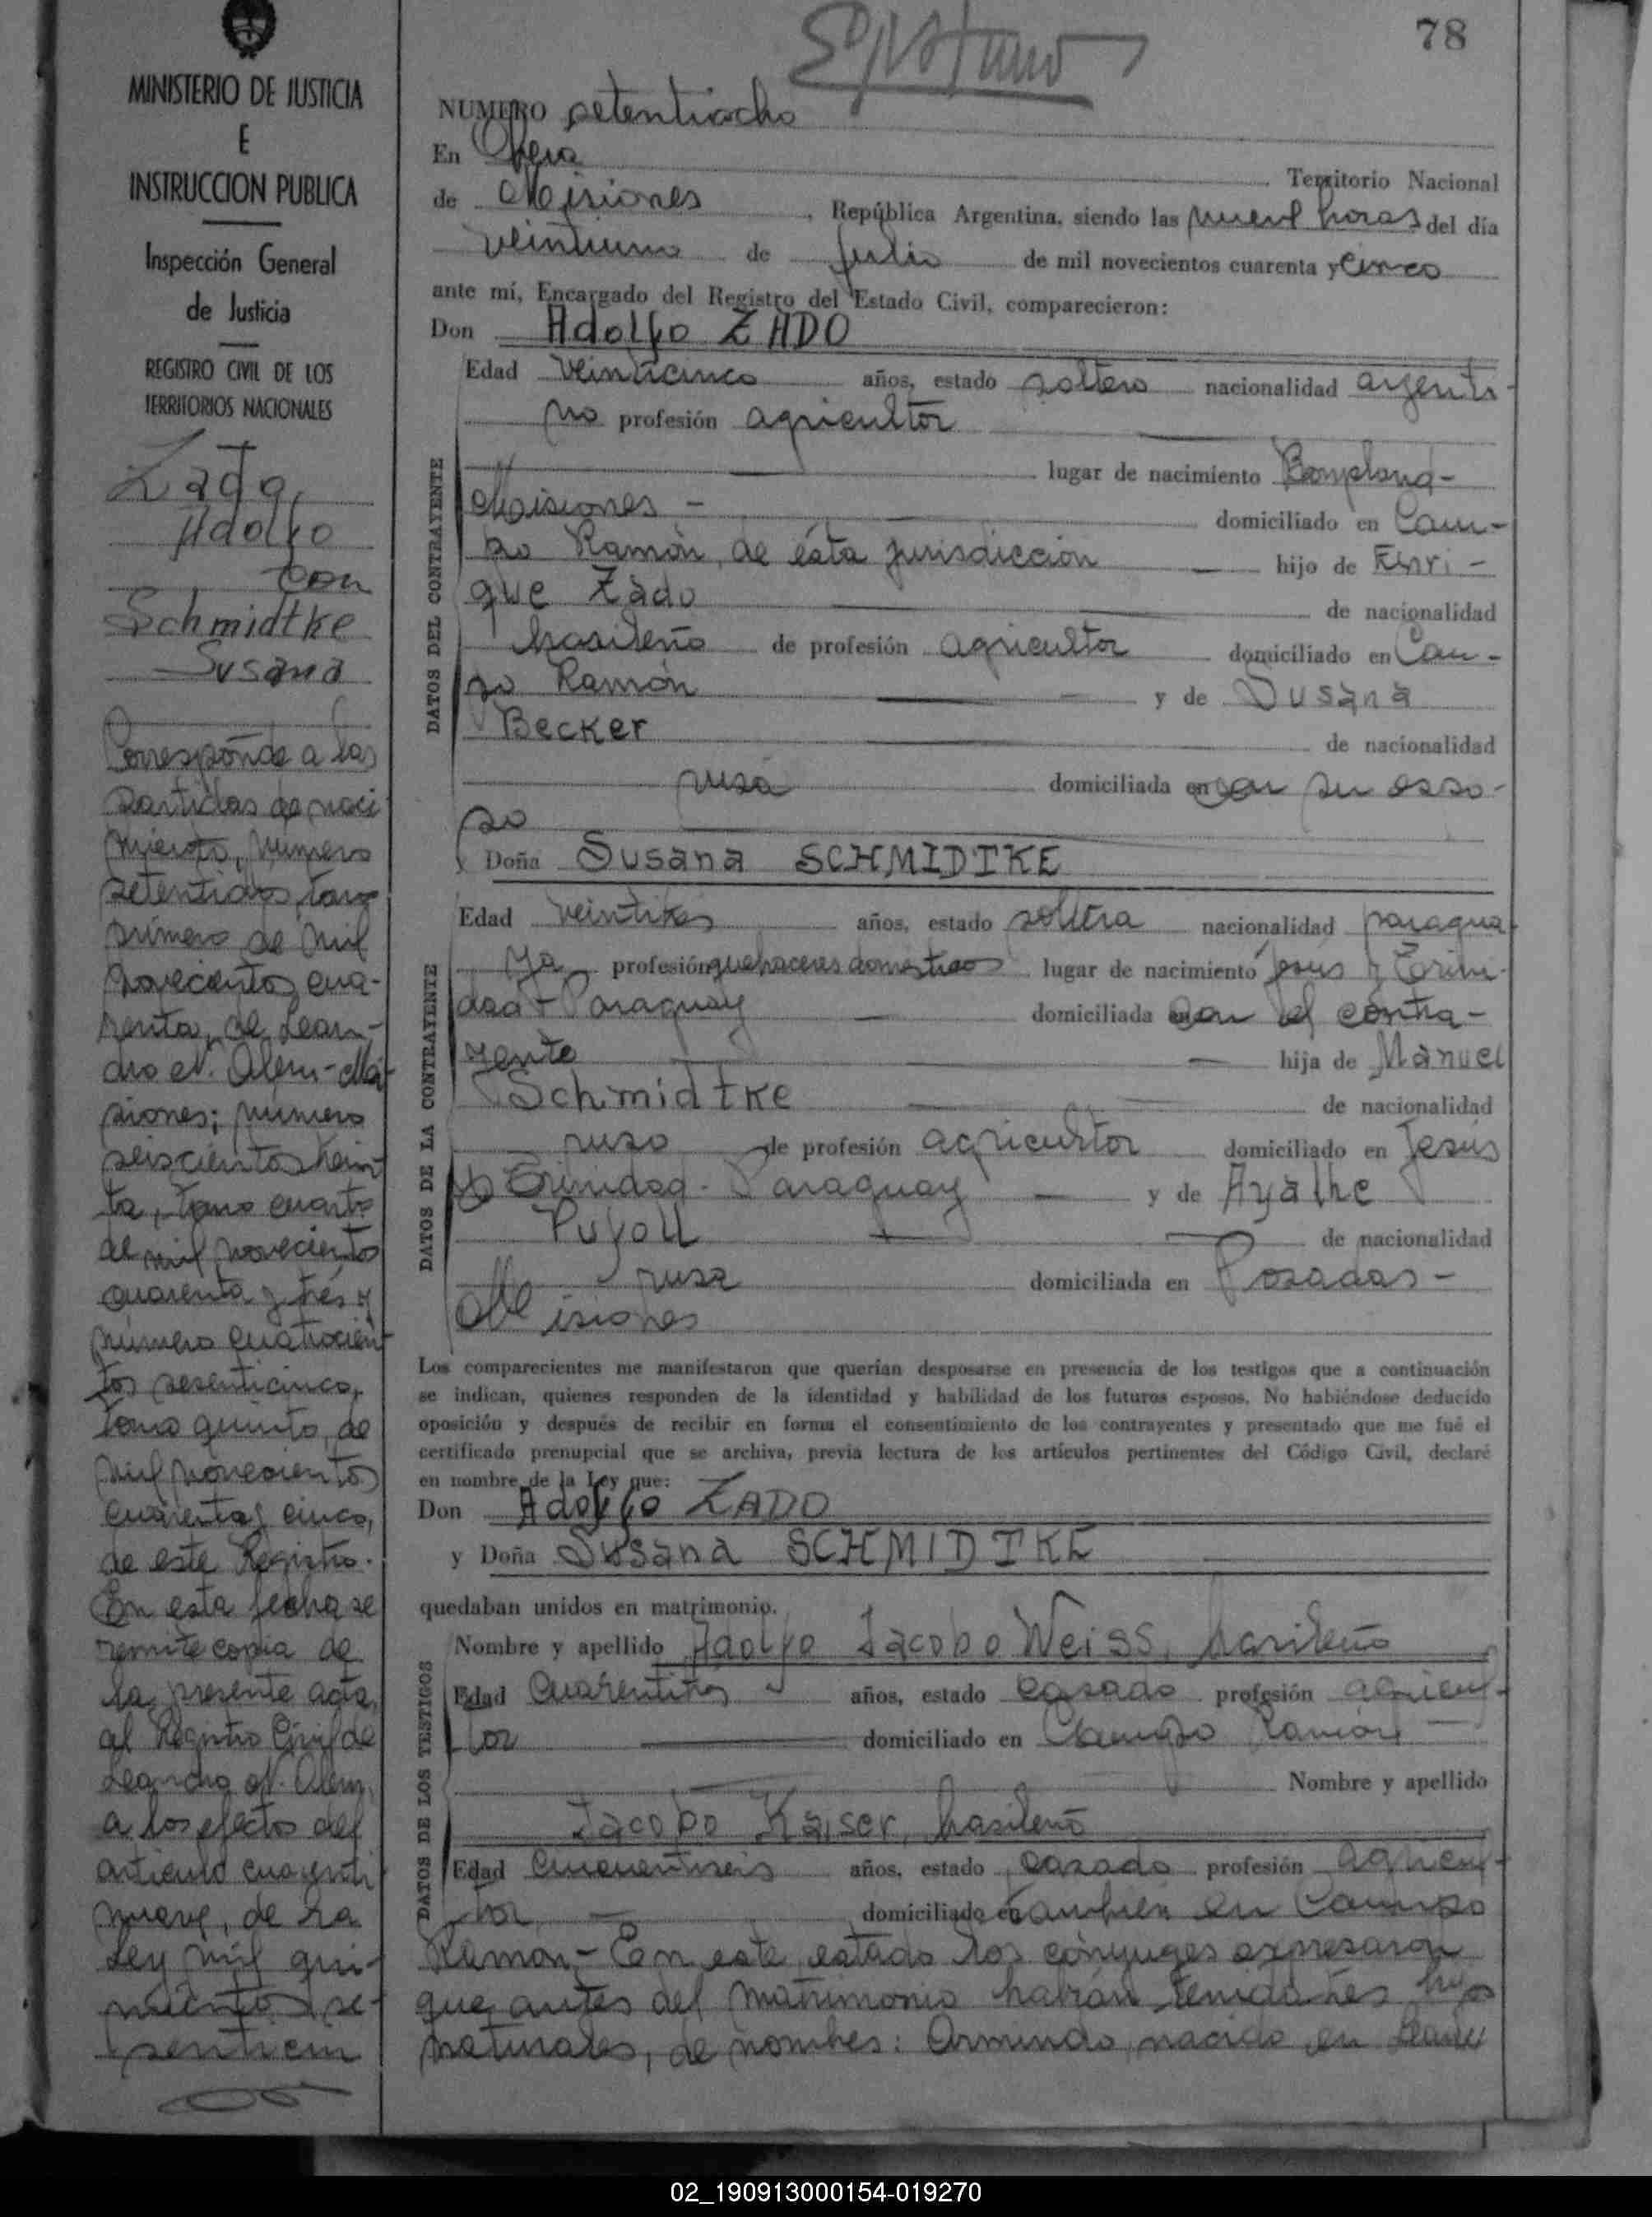 78
MINISTERIO DE JUSTICIA
E
INSTRUCCION PUBLICA
Inspección General
de Justicia
REGISTRO CIVIL DE LOS
TERRITORIOS NACIONALES
Zado,
Adolfo
con
Schmidtke
Susana
Corresponde a las
partidas de naci
miento, número
setentidos, tomo
primero de mil
novecientos cua-
renta, de Lean-
dro N. Alem-Mi
siones; número
seiscientos trein
ta, tomo cuarto
de mil novecientos
cuarenta y trés y
número cuatrocien
tos sesenticinco,
tomo quinto, de
mil novecientos
cuarenta y cinco,
de este Registro.
En esta fecha se
remite copia de
la presente acta,
al Registro Civil de
Leandro N. Alem,
a los efectos del
artículo cuarenti
nueve, de la
Ley mil qui-
nientos se-
senticin
NUMERO setentiocho
En Obera Territorio Nacional
de Misiones, República Argentina, siendo las nueve horas del día
veintiuno de julio de mil novecientos cuarenta y cinco
ante mí, Encargado del Registro del Estado Civil, comparecieron:
Don Adolfo ZADO
DATOS DEL CONTRAYENTE
Edad veinticinco años, estado soltero nacionalidad argenti-
no profesión agricultor
lugar de nacimiento Bonpland-
Misiones - domiciliado en Cam-
po Ramón, de ésta jurisdicción hijo de Enri-
que Zado de nacionalidad
brasileño de profesión agricultor domiciliado en Cam-
po Ramón y de Susana
Becker de nacionalidad
rusa domiciliada en con su espo-
so
y Doña Susana SCHMIDTKE
DATOS DE LA CONTRAYENTE
Edad veintitres años, estado soltera nacionalidad paragua-
ya profesión quehaceres domesticos lugar de nacimiento Jesus y Trini-
dad - Paraguay domiciliada con el contra-
yente hija de Manuel
Schmidtke de nacionalidad
ruso de profesión agricultor domiciliado en Jesús
y Trinidad - Paraguay y de
de nacionalidad
rusa domiciliada en Posadas-
Misiones
Los comparecientes me manifestaron que querían desposarse en presencia de los testigos que a continuación
se indican, quienes responden de la identidad y habilidad de los futuros esposos. No habiéndose deducido
oposición y después de recibir en forma el consentimiento de los contrayentes y presentado que me fué el
certificado prenupcial que se archiva, previa lectura de los artículos pertinentes del Código Civil, declaré
en nombre de la Ley que:
Don Adolfo ZADO
y Doña Susana SCHMIDTKE
quedaban unidos en matrimonio.
DATOS DE LOS TESTIGOS
Nombre y apellido Adolfo Jacobo Weiss, brasileño
Edad años, estado casado profesión agricul-
tor domiciliado en Campo Ramón
Nombre y apellido
Jacobo Kaiser, brasileño
Edad cincuentiseis años, estado casado profesión agricul-
tor domiciliado en también en Campo
Ramón,- En este estado los cónyuges expresaron
que antes del matrimonio habían tenido tres hijos
naturales, de nombres: Armindo, nacido en
02_190913000154-019270